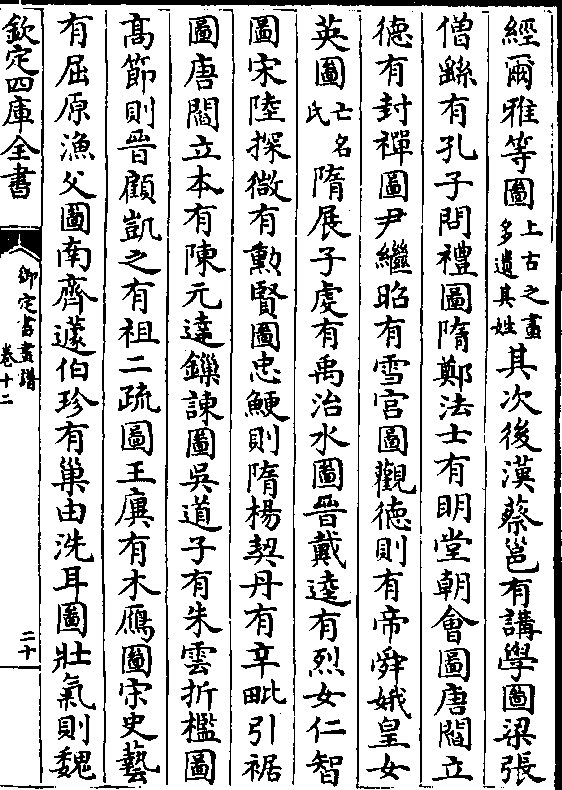 經爾雅等圖上古之畫多遺其姓其次後漢蔡邕有講學圖梁張
僧繇有孔子問禮圖隋鄭法士有明堂朝會圖唐閻立
徳有封禪圖尹繼昭有雪宫圖觀徳則有帝舜娥皇女
英圖亡名氏隋展子虔有禹治水圖晉戴逵有烈女仁智
圖宋陸探微有勲賢圖忠鯁則隋楊契丹有辛毗引裾
圖唐閻立本有陳元達鏁諫圖吳道子有朱雲折檻圖
髙節則晉顧凱之有祖二疏圖王廙有木鴈圖宋史藝
有屈原漁父圖南齊蘧伯珍有巢由洗耳圖壯氣則魏
欽定四庫全書
御定書畫譜
卷十二
二十